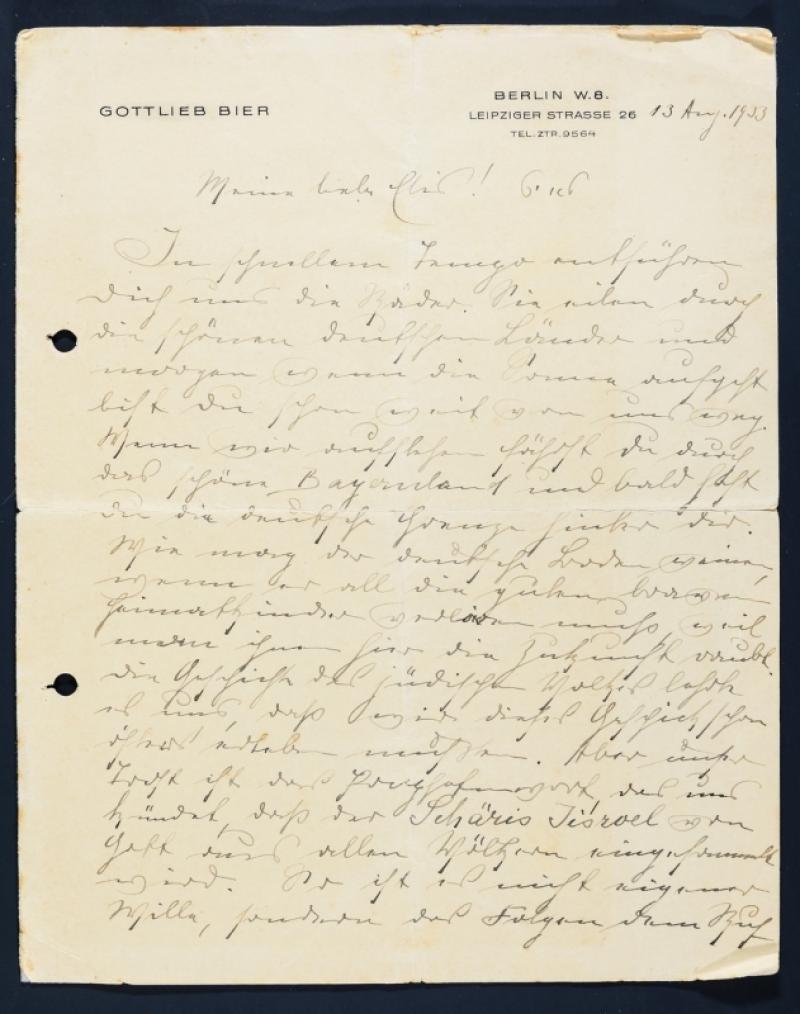 GOTTLIEB BIER
BERLIN W.8.
LEIPZIGER STRASSE 26 13 Aug. 1933
TEL. ZTR. 9564
Meine liebe Elis!
In schnellem Tempo entführen
Dich uns die Räder. Sie eilen durch
die schönen deutschen Länder und
morgen wenn die Sonne aufgeht
bist Du schon weit von uns weg.
Wenn wir aufstehen fährst Du durch
das schöne Bayernland und bald hast
Du die deutsche Grenze hinter Dir.
Wie mag der deutsche Boden weinen,
wenn er all die guten braven
Heimatkinder verlieren muß, weil
man ihnen hier die Zukunft raubt.
Die Geschichte des jüdischen Volkes lehrt
es uns, daß wir dieses Geschick schon
öfters erleben mußten. Aber unser
Trost ist das Prophetenwort, das uns
kündet, daß der Schäris Jisroel von
Gott aus allen Völkern eingesammelt
wird. So ist es nicht eigener
Wille, sondern das Folgen dem Ruf